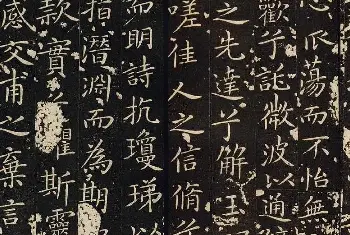 心振蕩而不怡無
歡兮託微波以通
之先達兮解玉
嗟佳人之信脩
而明詩抗瓊珶以
指潛淵而為期
款實懼斯靈
感交甫之棄言